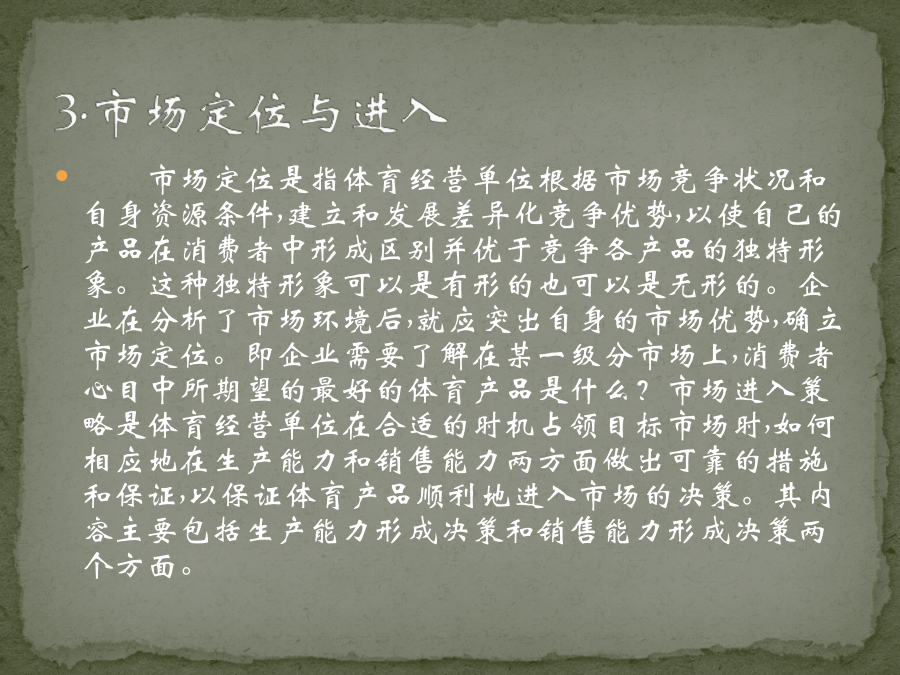 3.市场定位与进入
市场定位是指体育经营单位根据市场竞争状况和
自身资源条件,建立和发展差异化竞争优势,以使自己的
产品在消费者中形成区别并优于竞争各产品的独特形
象。这种独特形象可以是有形的也可以是无形的。企
业在分析了市场环境后,就应突出自身的市场优势,确立
市场定位。即企业需要了解在某一级分市场上,消费者
心目中所期望的最好的体育产品是什么？市场进入策
略是体育经营单位在合适的时机占领目标市场时,如何
相应地在生产能力和销售能力两方面做出可靠的措施
和保证,以保证体育产品顺利地进入市场的决策。其内
容主要包括生产能力形成决策和销售能力形成决策两
个方面。